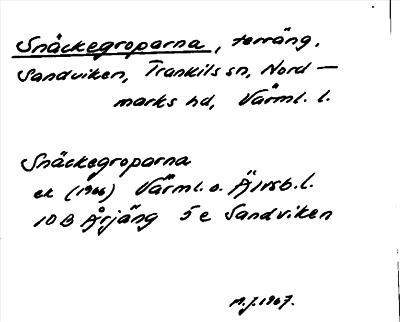 Snäckegroparna, terräng,
Sandviken, Trankils sn, Nord-
marks hd, Värml. l.
Snäckegroparna
ek (1966) Värml. o. Älvsb. l.
10B Årjäng 5e Sandviken
M.J. 1967.